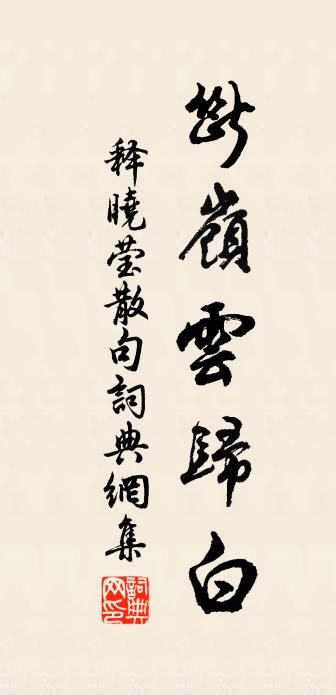 斷嶺雲歸白
释曉莹散句詞典網集
詞典网印